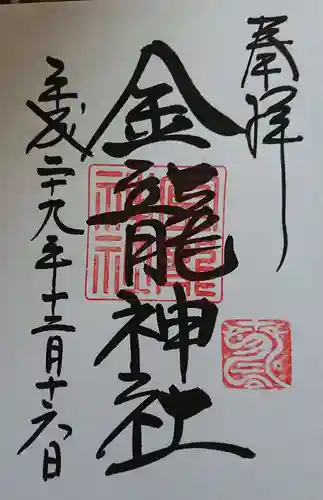 奉拝
金龍神社
平成二十九年十二月十六日
金龍神社